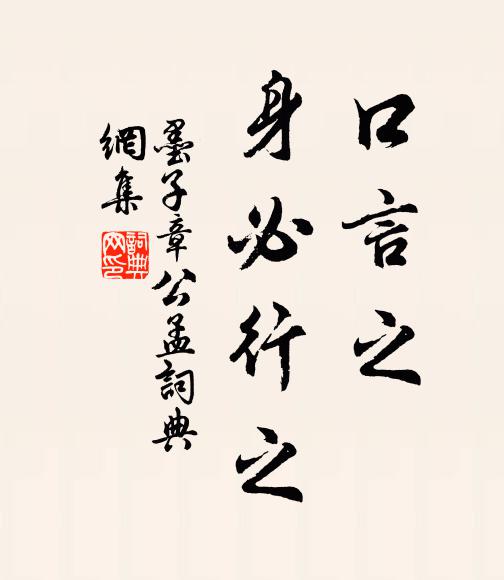 口言之
身必行之
墨子章公孟詞典
網集
詞典网印